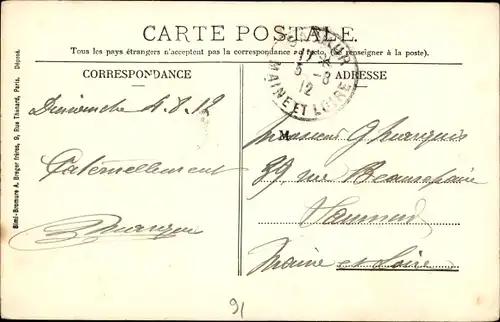 CARTE POSTALE.
Tous les pays étrangers n'acceptent pas la correspondance au recto, (se renseigner à la poste).
CORRESPONDANCE
ADRESSE
SAUMUR
17
5-8
12
MAINE ET LOIRE
Simi-Bromure A. Breger frères, 9, Rue Thénard, Paris. Déposé.
Dimanche 4.8.12
M
Monsieur G Marquis
29 rue Beaurepaire
Saumur
Maine et Loire
91